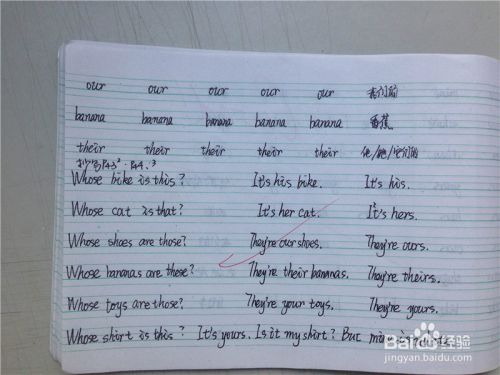 our our our our our 我们的
banana banana banana banana banana 香蕉
their their their their their 他/她/它们的
抄写P43² P44、³
Whose bike is this? It's his bike. It's his.
Whose cat is that? It's her cat. It's hers.
Whose shoes are those? They're our shoes. They're ours.
Whose bananas are these? They're their bananas. They're theirs.
Whose toys are those? They're your toys. They're yours.
Whose shirt is this? It's yours. Is it my shirt? But mine is
Baidu经验
jingyan.baidu.com